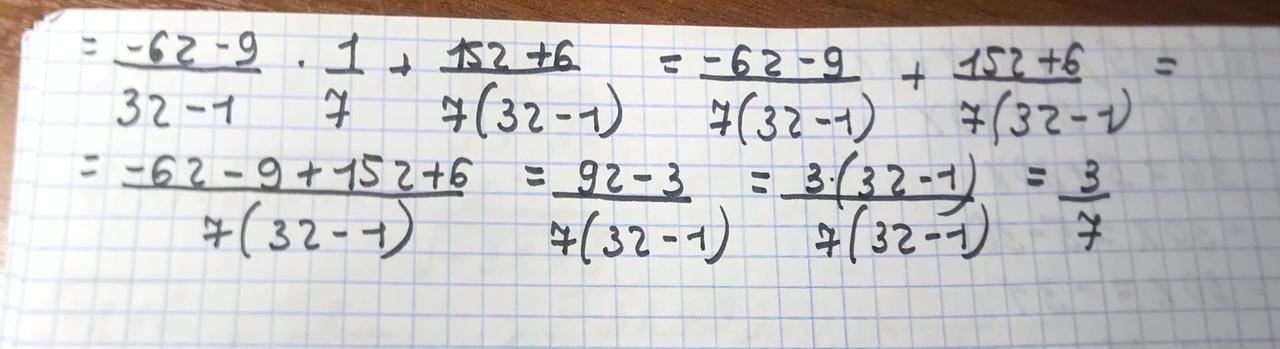 = (-6z - 9)/(3z - 1) · 1/7 + (15z + 6)/(7(3z - 1)) = (-6z - 9)/(7(3z - 1)) + (15z + 6)/(7(3z - 1)) =
= (-6z - 9 + 15z + 6)/(7(3z - 1)) = (9z - 3)/(7(3z - 1)) = (3·(3z - 1))/(7(3z - 1)) = 3/7